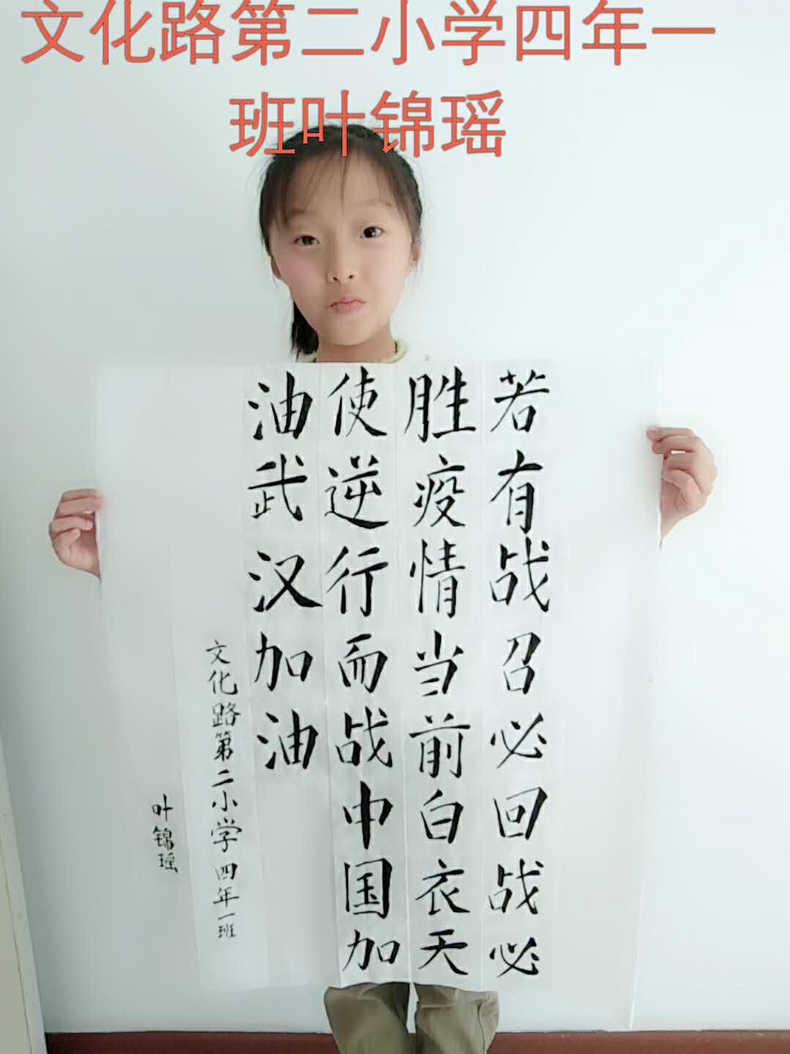 文化路第二小学四年一
班叶锦瑶
若有战召必回战必
胜疫情当前白衣天
使逆行而战中国加
油武汉加油
文化路第二小学四年一班
叶锦瑶